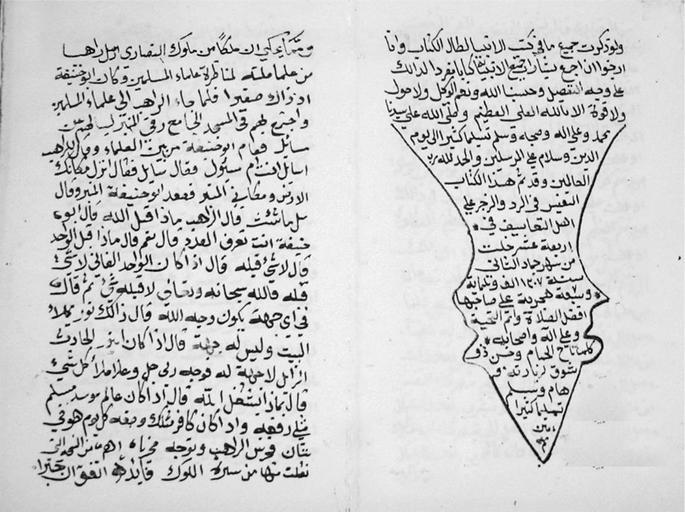 ولو ذكرت جميع ما في كتب الانبيا لطال الكتاب وانا
ارجوا ان اجمع بشاير جميع الانبيا كتابا بمفرد الذلك
على وجه التفصيل وحسبنا الله ونعم الوكيل ولا حول
ولا قوة الا بالله العلي العظيم وصلى الله على سيدنا
محمد وعلى اله وصحبه وسلم تسليما كثيرا الى يوم
الدين وسلام على المرسلين والحمد لله رب
العالمين وقد تم هذا الكتاب
النفيس في الرد والزجر على
اهل التعاسيف في
اربعة عشر خلت
من شهر جماد الثاني
سنة ١٢٠٧ الف
وسبعة هجرية على صاحبها
افضل الصلاة واتم التحية
وعلى اله واصحابه
كلما ناح الحمام وحن ذو
شوق لزيارته و
هام وسلم
تسليما كثيرا
ومما يحكى ان ملكا من ملوك النصارى ارسل راهبا
من علما ملته لمناظرة علماء المسلمين وكان ابو حنيفة
اذ ذاك صغيرا فلما جاء الراهب الى علماء المسلمين
واجتمع لهم في المسجد الجامع رقى المنبر
سايل فقام ابو حنيفة من بين العلماء وقال للراهب
اسايل انت ام مسئول فقال سايل فقال انزل مكانك
الارض ومكاني المنبر فصعد ابو حنيفة المنبر وقال
سل ما شئت قال الراهب ماذا قبل الله قال ابو
حنيفة انت تعرف العدد قال نعم قال ماذا قبل الواحد
قال لا شئ قبله قال اذا كان الواحد الفاني لا شئ
قبله فالله سبحانه وتعالى لا قبله شئ ثم قال
في اي جهة يكون وجه الله قال ذالك نور
البيت وليس له جهة قال اذا كان النور الحادث
لا جهة له فوجه ربي جل وعلا
قال بماذا يشتغل الله قال اذا كان عالم موحد مسلم
رفعه واذا كان كافر وضعه كل يوم هو في
شان فخرس الراهب وتوجه
نقلت منها من سيرة الملوك